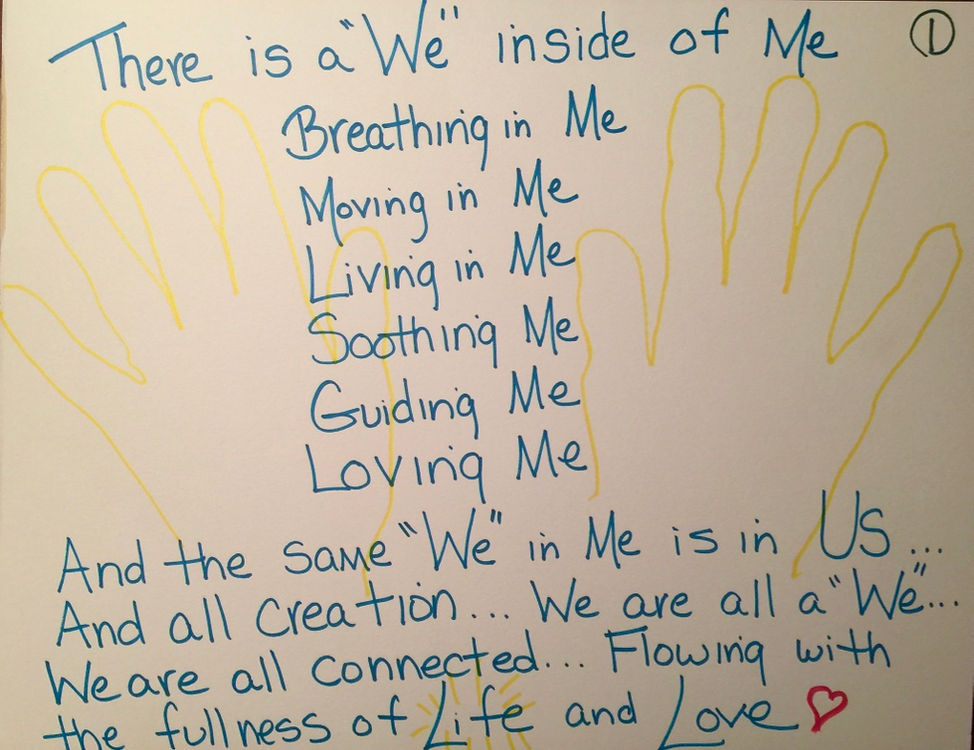 There is a "We" inside of Me ①
Breathing in Me
Moving in Me
Living in Me
Soothing Me
Guiding Me
Loving Me
And the same "We" in Me is in Us ...
And all creation... We are all a "We"...
We are all connected... Flowing with
the fullness of Life and Love